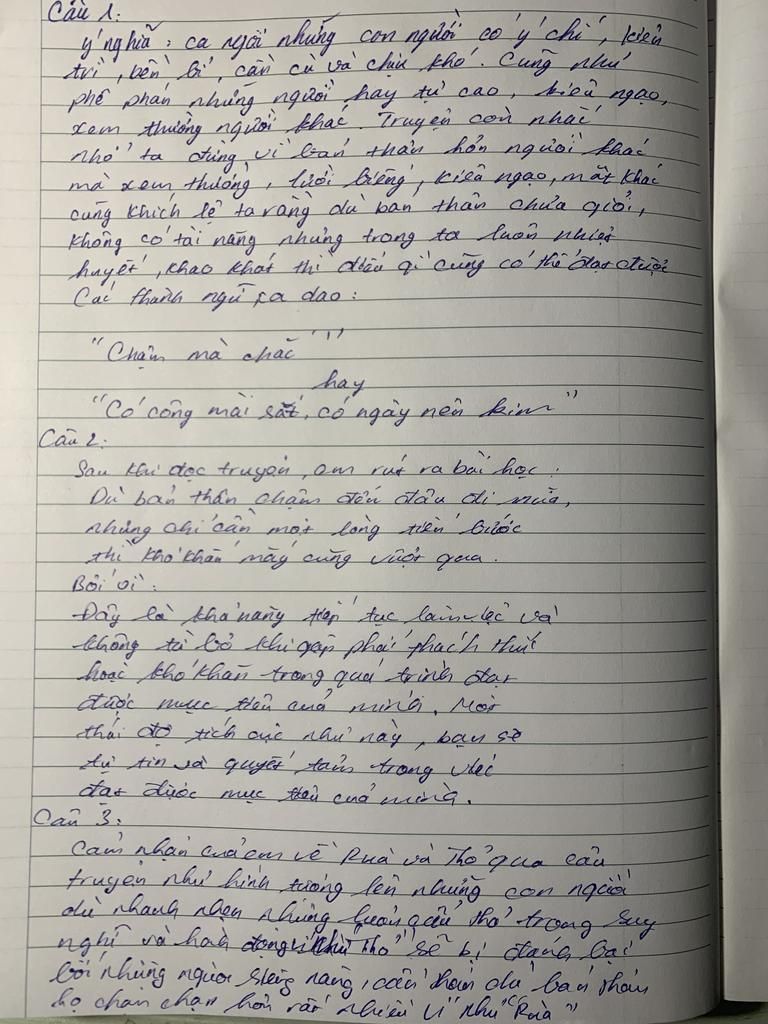 Câu 1:
ý nghĩa : ca ngợi những con người có ý chí, kiên
trì, bền bỉ, cần cù và chịu khó. Cũng như
phê phán những người hay tự cao, kiêu ngạo,
xem thường người khác. Truyện còn nhắc
nhở ta đừng vì bản thân hơn người khác
mà xem thường, lười biếng, kiêu ngạo, mặt khác
cũng khích lệ ta rằng dù bản thân chưa giỏi,
không có tài năng nhưng trong ta luôn nhiệt
huyết, khao khát thì điều gì cũng có thể đạt được
Các thành ngữ, ca dao :
"Chậm mà chắc"
hay
"Có công mài sắt, có ngày nên kim"
Câu 2:
Sau khi đọc truyện, em rút ra bài học :
Dù bản thân chậm đến đâu đi nữa,
nhưng chỉ cần một lòng tiến bước
thì khó khăn mấy cũng vượt qua.
Bởi vì :
Đây là khả năng tiếp tục làm việc và
không từ bỏ khi gặp phải thách thức
hoặc khó khăn trong quá trình đạt
được mục tiêu của mình. Một
thái độ tích cực như này, bạn sẽ
tự tin và quyết tâm trong việc
đạt được mục tiêu của mình.
Câu 3:
Cảm nhận của em về Rùa và Thỏ qua câu
truyện như hình tượng lên những con người
dù nhanh nhẹn nhưng luôn cẩu thả trong suy
nghĩ và hành động như "Thỏ" sẽ bị đánh bại
bởi những người siêng năng, cẩn thận dù bản thân
họ chậm chạp hơn rất nhiều như "Rùa"